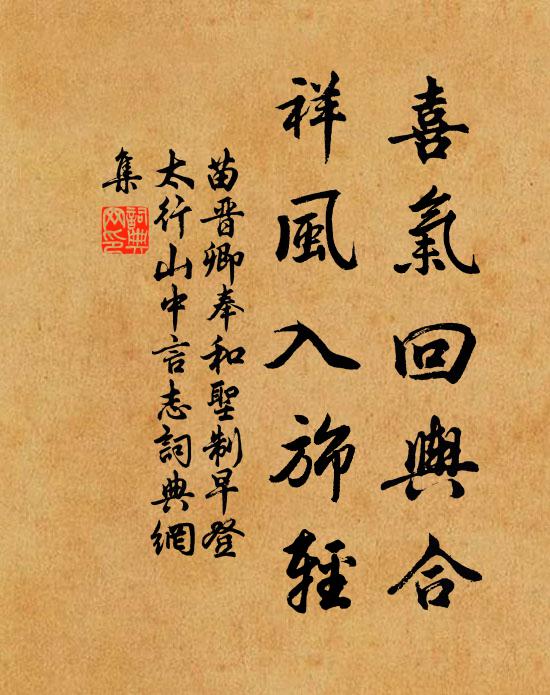 喜氣回輿合
祥風入旆輕
苗晉卿奉和聖制早登
太行山中言志詞典網
集
詞典
网印